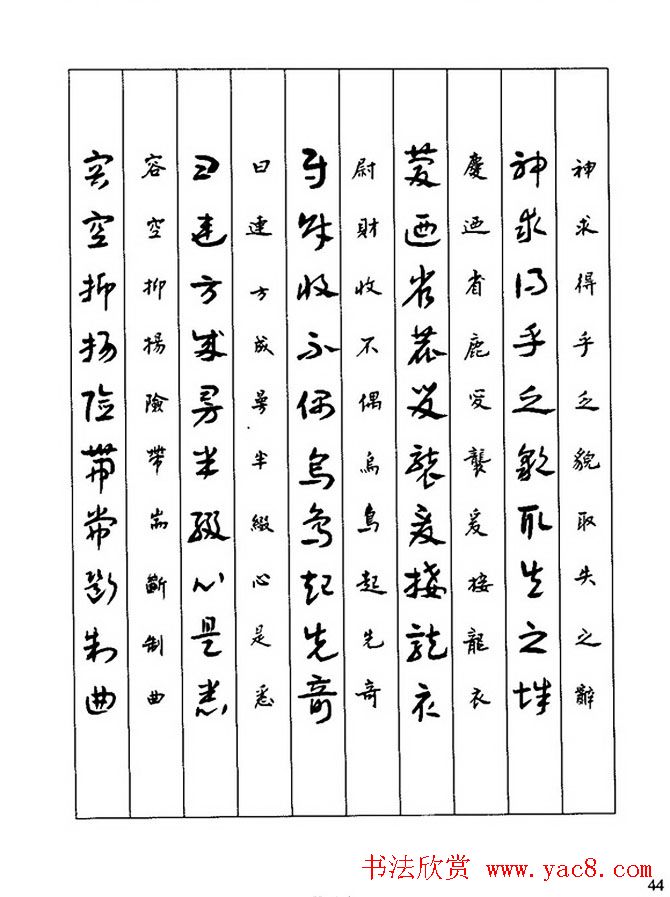 神求得乎乏貌取失之辭
神求得乎乏貌取失之
慶迺省鹿受襲爰接龍衣
慶迺省鹿受襲爰接龍衣
尉財收不偶烏鳥起先奇
尉財收不偶烏鳥起先奇
曰連方成半心是悉
曰連方成半心是悉
容空抑揚險帶耑斷制曲
容空抑揚險帶耑斷制曲
书法欣赏 www.yac8.com
44